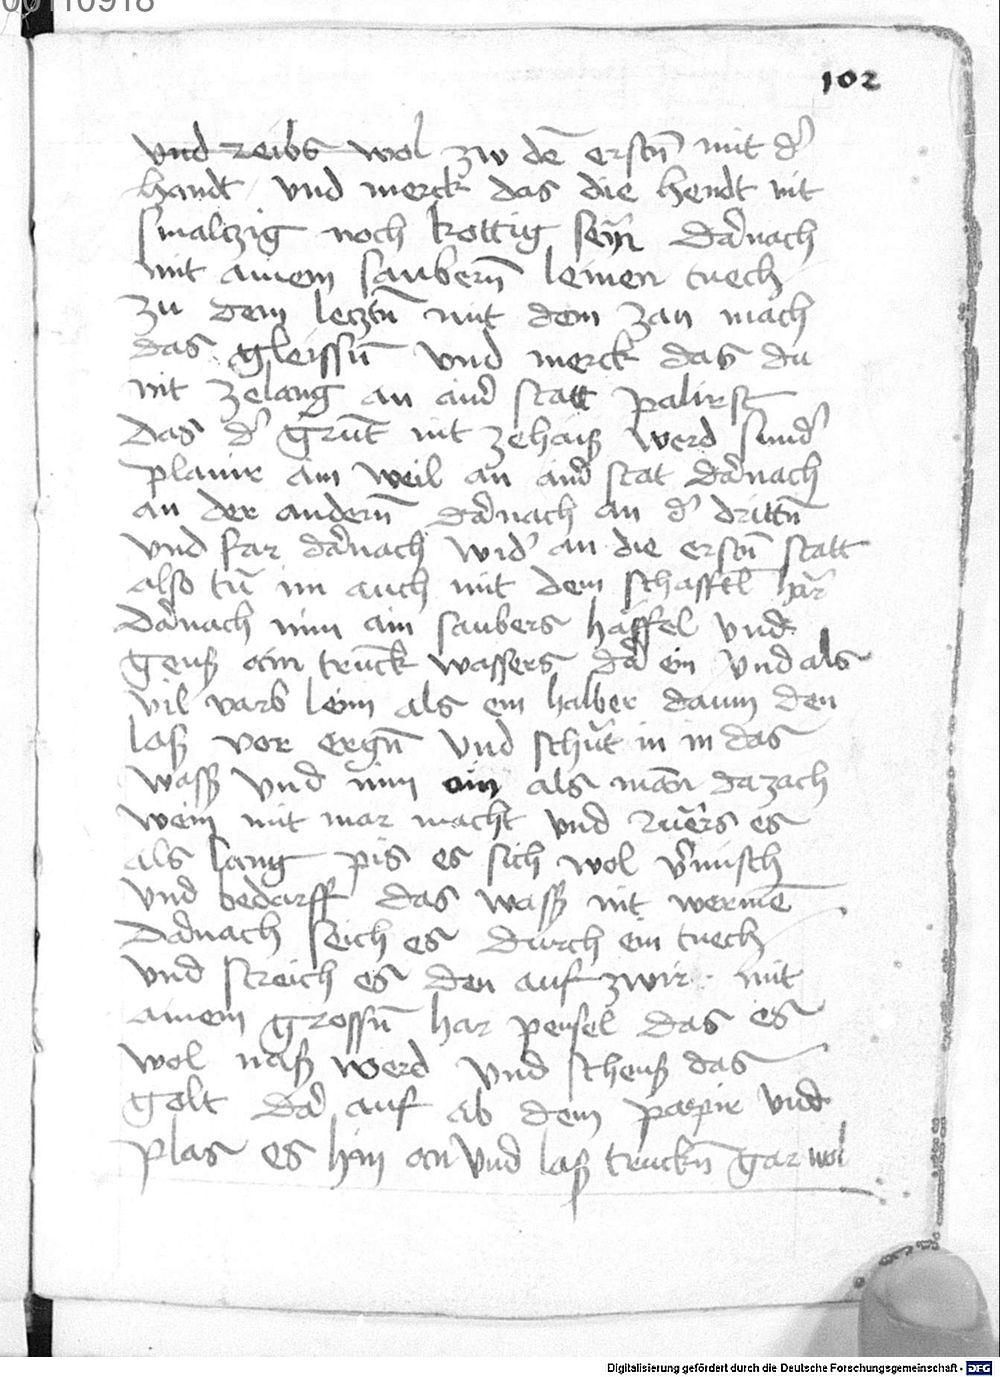 00110918
102
vnd reibs wol zw dē erstn̄ mit d'
handt vnd merck das die hendt nit
smalczig noch kottig seyn̄ dar̄nach
mit ainem saubern̄ leinen tuech
zu dem lecztn̄ mit dem zan mach
das gleissn̄ vnd merck das du
nit zelang an ain'd statt palirst
das d' grūt nit zehaiß werd sund'
planir ain weil an ain'd stat dar̄nach
an der andern̄ dar̄nach an d' drittn̄
vnd far dar̄nach wid' an die erstn̄ statt
also tū im auch mit dem schafftl̄ hār
dar̄nach nim ain saubers häffel vnd
geuß ain trūck wassers dar̄ ein vnd als
vil varb leim als ein halber daum den
laß vor ergn̄ vnd schüt in in das
wass' vnd nim ain als man da zach
wein mit mar macht vnd rüers es
als lang pis es sich wol v'misch
vnd bedarff das wass' nit wermē
dar̄nach seich es durch ein tuech
vnd streich es den auf zwir mit
ainem grossn̄ har pensel das es
wol naß werd vnd scheuß das
golt dar̄ auf ab dem papir vnd
plas es hin an vnd laß truckn̄ gar wol
Digitalisierung gefördert durch die Deutsche Forschungsgemeinschaft - DFG